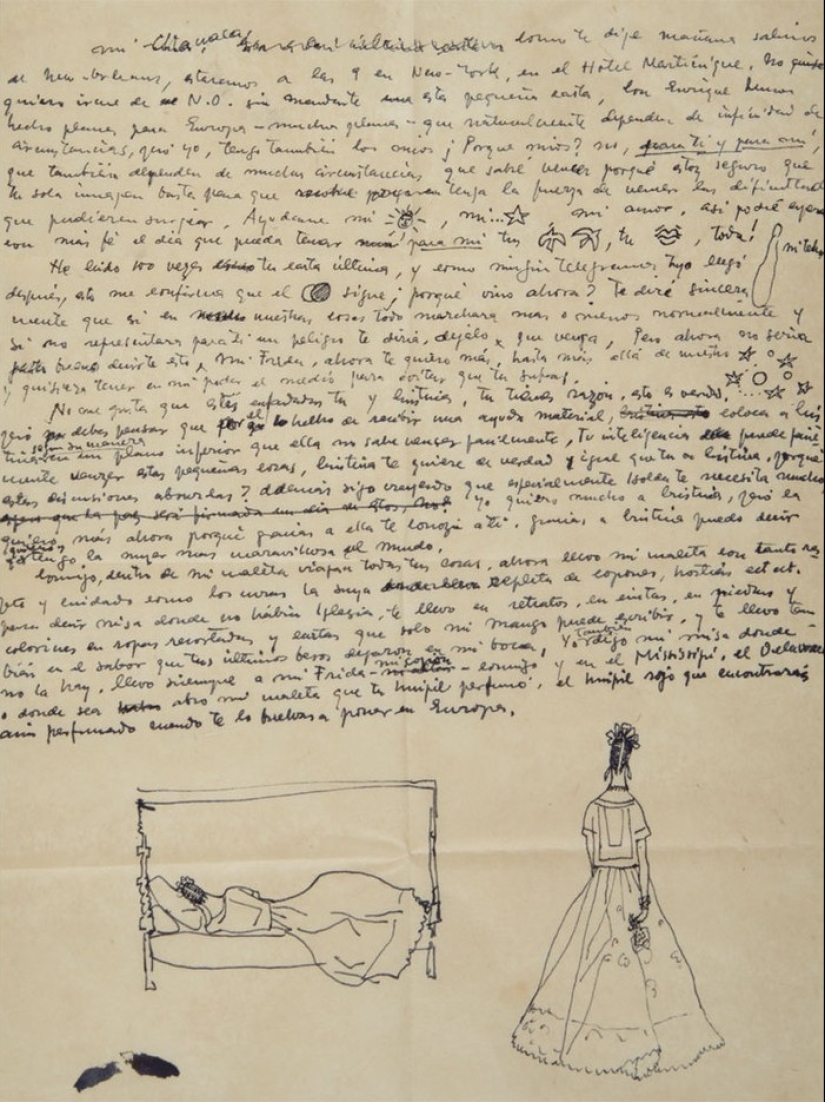 mi Chiquita como te dije mañana salimos
de New-Orleans, estaremos a las 9 en New-York, en el Hotel Martinique. No
quiero irme de N.O. sin mandarte esta pequeña carta, con Enrique hemos
hecho planes para Europa - muchos planes - que naturalmente dependen de infinidad de
circunstancias, pero yo, tengo también los mios ¿Porque mios? no, para ti y para mi,
que también dependen de muchas circunstancias que sabré vencer porqué estoy seguro que
tu sola imagen basta para que tenga la fuerza de vencer las dificultades
que pudieren surgir. Ayudame mi , mi... , mi amor, así podré
con más fé el día que pueda tener para mi tus , tu , toda!
He leido 100 veces tu carta última, y como ningún telegrama tuyo llegó
después, esto me confirma que el sigue, ¿porqué vino ahora? Te diré sincera
mente que si en nuestras cosas todo marchara mas o menos normalmente y
si no representara para ti un peligro te diría, dejalo que venga, Pero ahora no sería
bueno decirte esto, mi Frida, ahora te quiero más, hasta más allá de
y quisiera tener en mi poder el medio para evitar que tu sufras.
No me gusta que estés enfadadas tu y Cristina, tu tienes razon, esto es verdad,
pero debes pensar que el hecho de recibir una ayuda material, coloca a Cris
tina en un plano inferior que ella no sabe vencer facilmente, tu inteligencia puede facil
mente vencer estas pequeñas cosas, Cristina te quiere de verdad y igual que tu a Cristina, porqué
estas discusiones absurdas? Además sigo creyendo que especialmente Isolda te necesita mucho
Yo quiero mucho a Cristina, pero la
quiero más ahora porqué gracias a ella te conocí a ti. gracias a Cristina puedo decir
tengo la mujer mas maravillosa del mundo.
Conmigo, dentro de mi maleta viajan todas tus cosas, ahora llevo mi maleta con tanto res
peto y cuidado como los curas la suya repleta de copones, hostias
para decir misa donde no había Iglesia, te llevo en retratos, en cintas, en piedras y
colorines en ropas recortadas y cartas que solo mi mango puede escribir, y te llevo tam
bién en el sabor que tus últimos besos dejaron en mi boca, Yo también digo mi misa donde
no la hay, llevo siempre a mi Frida - mi copón - conmigo y en el Mississipi, el Delaware
o donde sea abro mi maleta que tu huipil perfumó, el huipil rojo que encontrarás
aún perfumado cuando te lo vuelvas a poner en Europa.